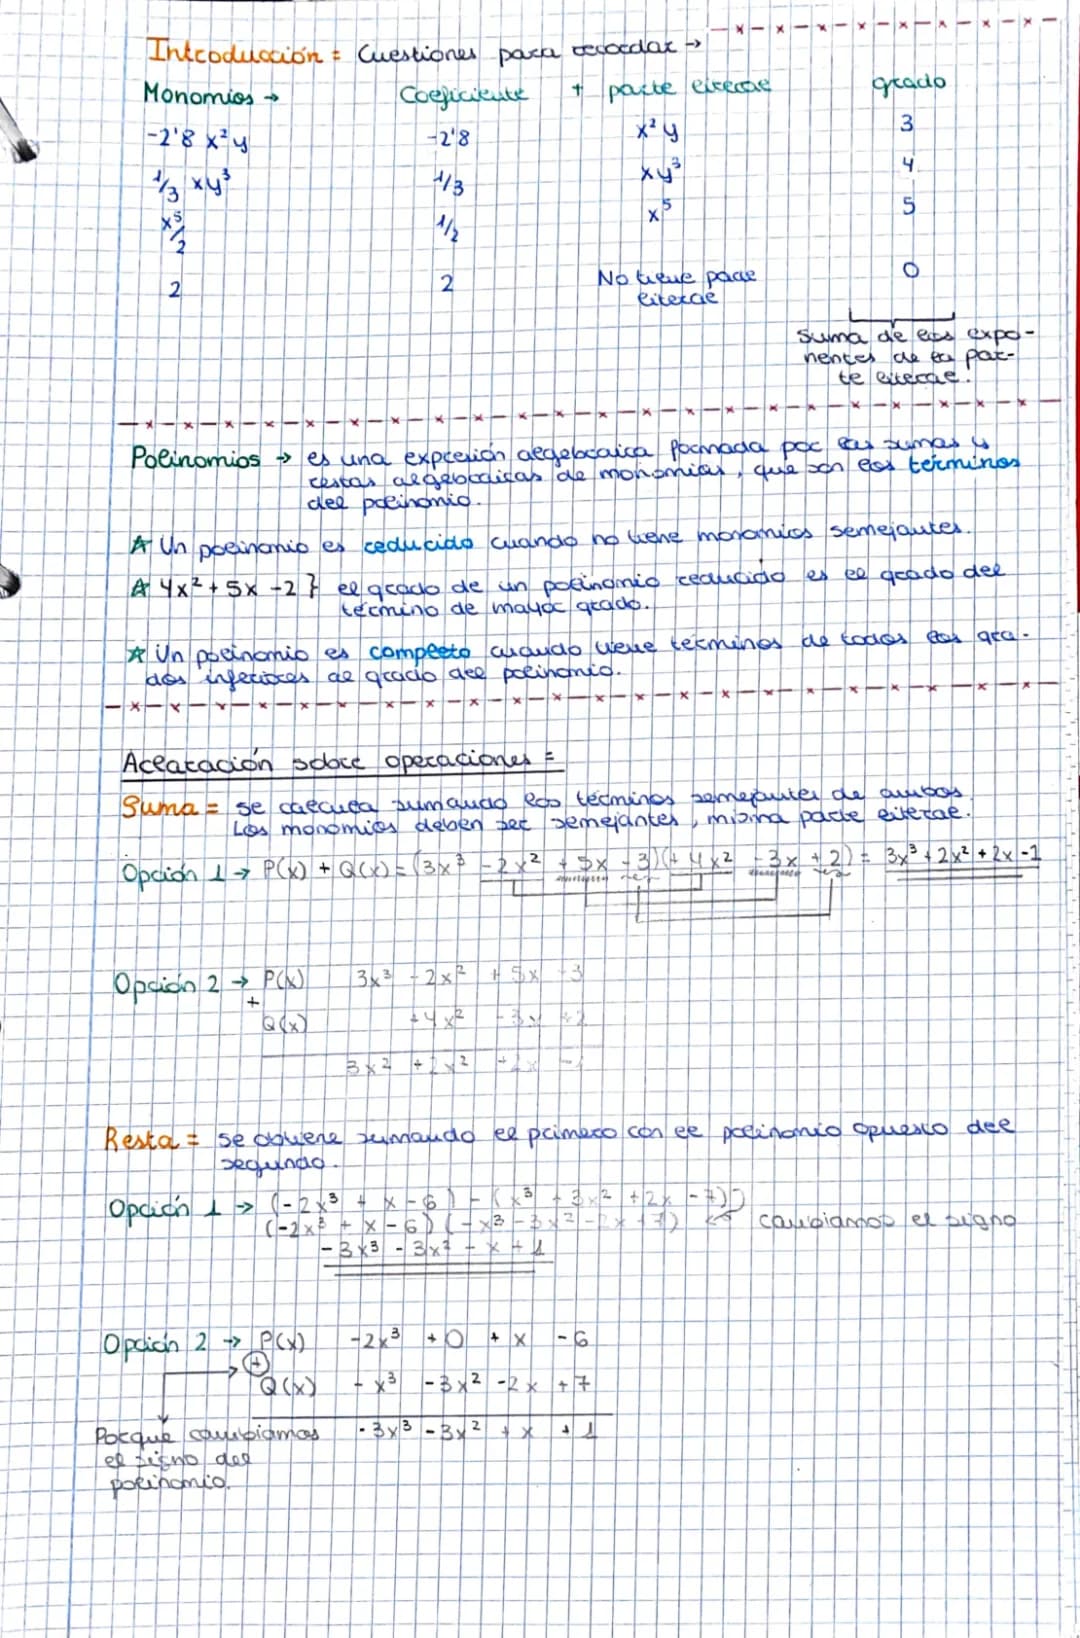 Introducción = Cuestiones para recordar →
Monomios → Coeficiente + parte literal grado
-2'8 x² y -2'8 x² y 3
1/3 xy³ 1/3 xy³ 4
x⁵/2 1/2 x⁵ 5
2 2 No tiene parte literal 0
Suma de los expo-
nentes de la par-
te literal.
Polinomios → es una expresión algebraica formada por las sumas y
restas algebraicas de monomios, que son los términos
del polinomio.
☆ Un polinomio es reducido cuando no tiene monomios semejantes.
☆ 4x² + 5x - 2 } el grado de un polinomio reducido es el grado del
término de mayor grado.
☆ Un polinomio es completo cuando tiene términos de todos los gra-
dos inferiores al grado del polinomio.
Aclaración sobre operaciones =
Suma = se calcula sumando los términos semejantes de ambos.
Los monomios deben ser semejantes, misma parte literal.
Opción 1 → P(x) + Q(x) = (3x³ - 2x² + 5x - 3)(+ 4x² - 3x + 2) = 3x³ + 2x² + 2x - 1
Opción 2 → P(x) 3x³ - 2x² + 5x - 3
+
Q(x) + 4x² - 3x + 2
3x² + 2x² + 2x - 1
Resta = se obtiene sumando el primero con el polinomio opuesto del
segundo.
Opción 1 → (-2x³ + x - 6) - (x³ + 3x² + 2x - 7)
(-2x³ + x - 6) (-x³ - 3x² - 2x + 7) cambiamos el signo
- 3x³ - 3x² - x + 1
Opción 2 → P(x) -2x³ + 0 + x - 6
+
Q(x) - x³ - 3x² - 2x + 7
Porque cambiamos - 3x³ - 3x² + x + 1
el signo del
polinomio.